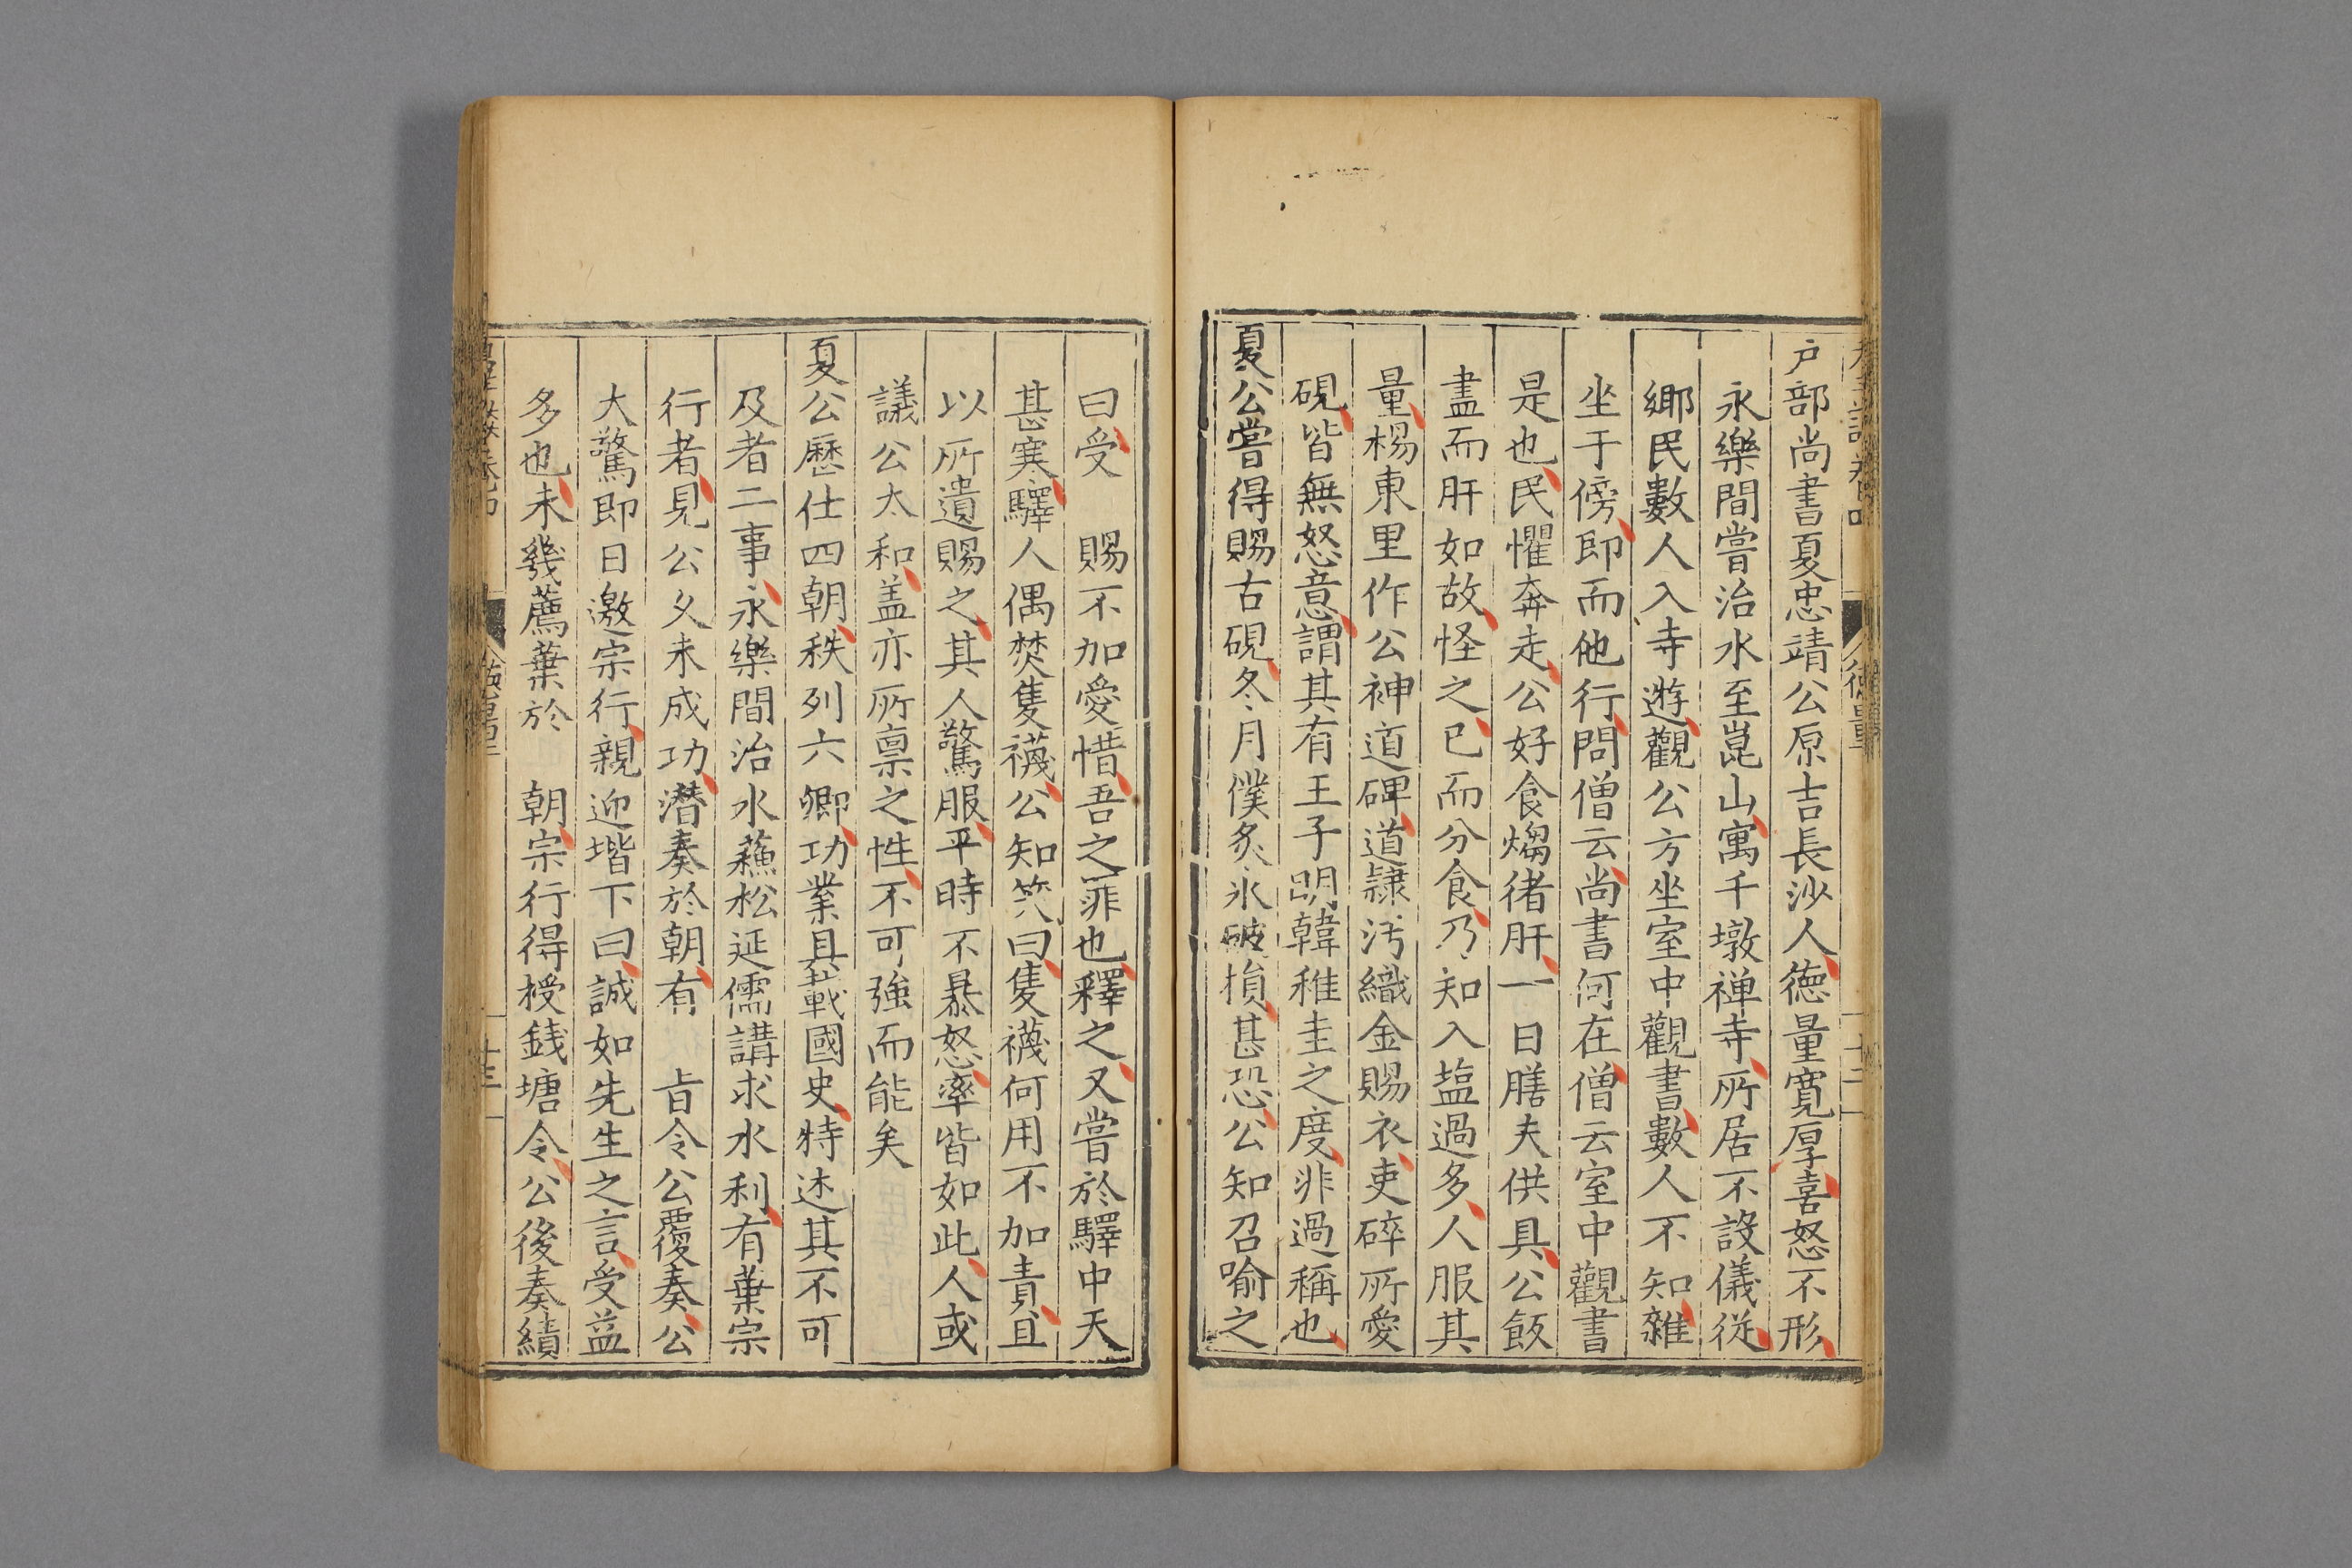 戶部尚書夏忠靖公原吉長沙人德量寬厚喜怒不形
永樂間嘗治水至崑山寓千墩禅寺所居不設儀從
鄉民數人入寺遊觀公方坐室中觀書數人不知雜
坐于傍即而他行問僧云尚書何在僧云室中觀書
是也民懼奔走公好食煼猪肝一日膳夫供具公飯
盡而肝如故怪之已而分食乃知入塩過多人服其
量楊東里作公神道碑道隷污織金賜衣吏碎所愛
硯皆無怒意謂其有王子明韓稚圭之度非過稱也
夏公嘗得賜古硯冬月僕炙氷破損甚恐公知召喻之
曰受 賜不加愛惜吾之罪也釋之又嘗於驛中天
甚寒驛人偶焚隻襪公知笑曰隻襪何用不加責且
以所遺賜之其人驚服平時不暴怒率皆如此人或
議公太和盖亦所禀之性不可強而能矣
夏公歷仕四朝秩列六卿功業具載國史特述其不可
及者二事永樂間治水蘓松延儒講求水利有葉宗
行者見公久未成功潜奏於朝有 旨令公覆奏公
大驚即日邀宗行親迎堦下曰誠如先生之言受益
多也未幾薦葉於 朝宗行得授錢塘令公後奏績